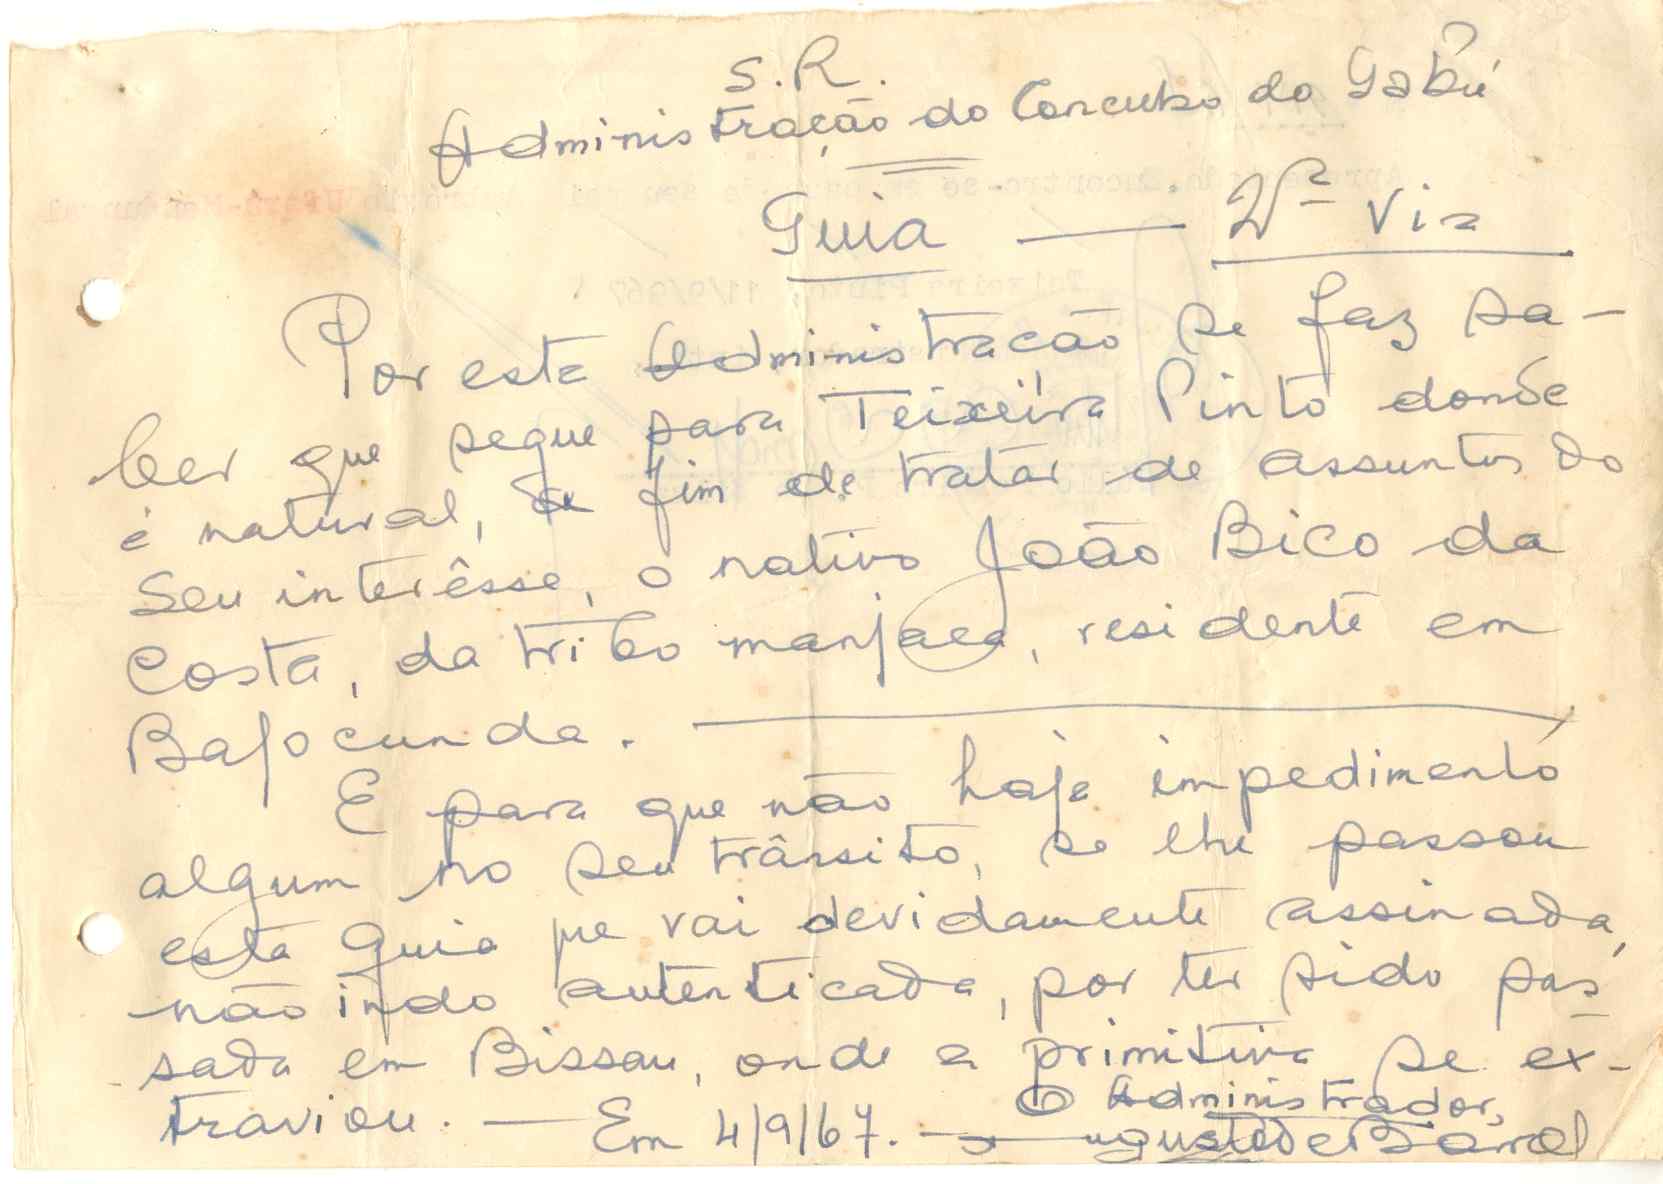 S.R.
Administração do Concelho do Gabú
Guia — 2ª Via
Por esta Administracão se faz sa-
ber que segue para Teixeira Pinto donde
é natural, a fim de tratar de assuntos do
seu interêsse, o nativo João Bico da
Costa, da tribo manjaca, residente em
Bajocunda.
E para que não haja impedimento
algum no seu trânsito, se lhe passou
esta guia que vai devidamente assinada,
não indo autenticada, por ter sido pas-
sada em Bissau, onde a primitiva se ex-
traviou. — Em 4/9/67. —
O Administrador,